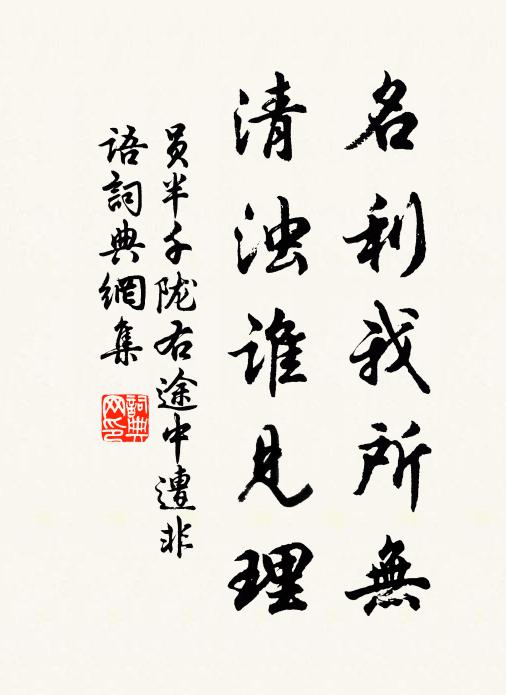 名利我所無
清浊谁見理
員半千陇右途中遭非
语詞典網集
詞典网印